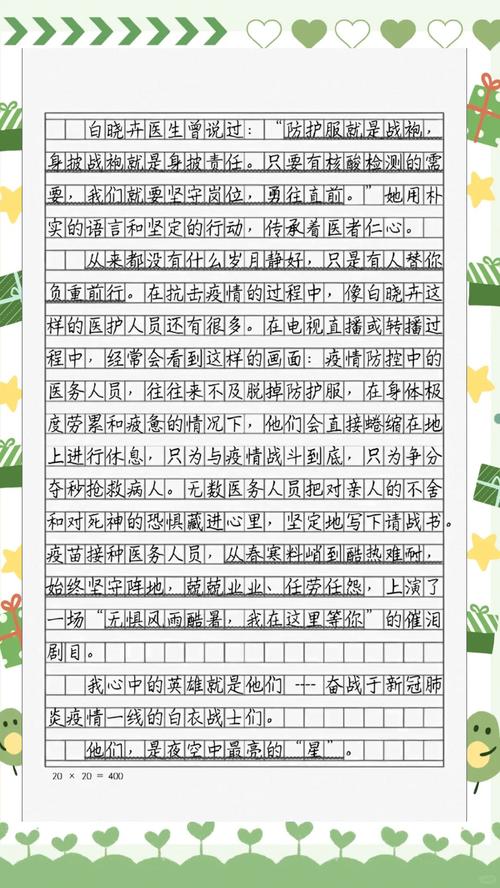 白晓卉医生曾说过：“防护服就是战袍，
身披战袍就是身披责任。只要有核酸检测的需
要，我们就要坚守岗位，勇往直前。”她用朴
实的语言和坚定的行动，传承着医者仁心。
从来都没有什么岁月静好，只是有人替你
负重前行。在抗击疫情的过程中，像白晓卉这
样的医护人员还有很多。在电视直播或转播过
程中，经常会看到这样的画面：疫情防控中的
医务人员，往往来不及脱掉防护服，在身体极
度劳累和疲惫的情况下，他们会直接蜷缩在地
上进行休息，只为与疫情战斗到底，只为争分
夺秒抢救病人。无数医务人员把对亲人的不舍
和对死神的恐惧藏进心里，坚定地写下请战书。
疫苗接种医务人员，从春寒料峭到酷热难耐，
始终坚守阵地，兢兢业业、任劳任怨，上演了
一场“无惧风雨酷暑，我在这里等你”的催泪
剧目。
我心中的英雄就是他们 ---- 奋战于新冠肺
炎疫情一线的白衣战士们。
他们，是夜空中最亮的“星”。
20 × 20 = 400